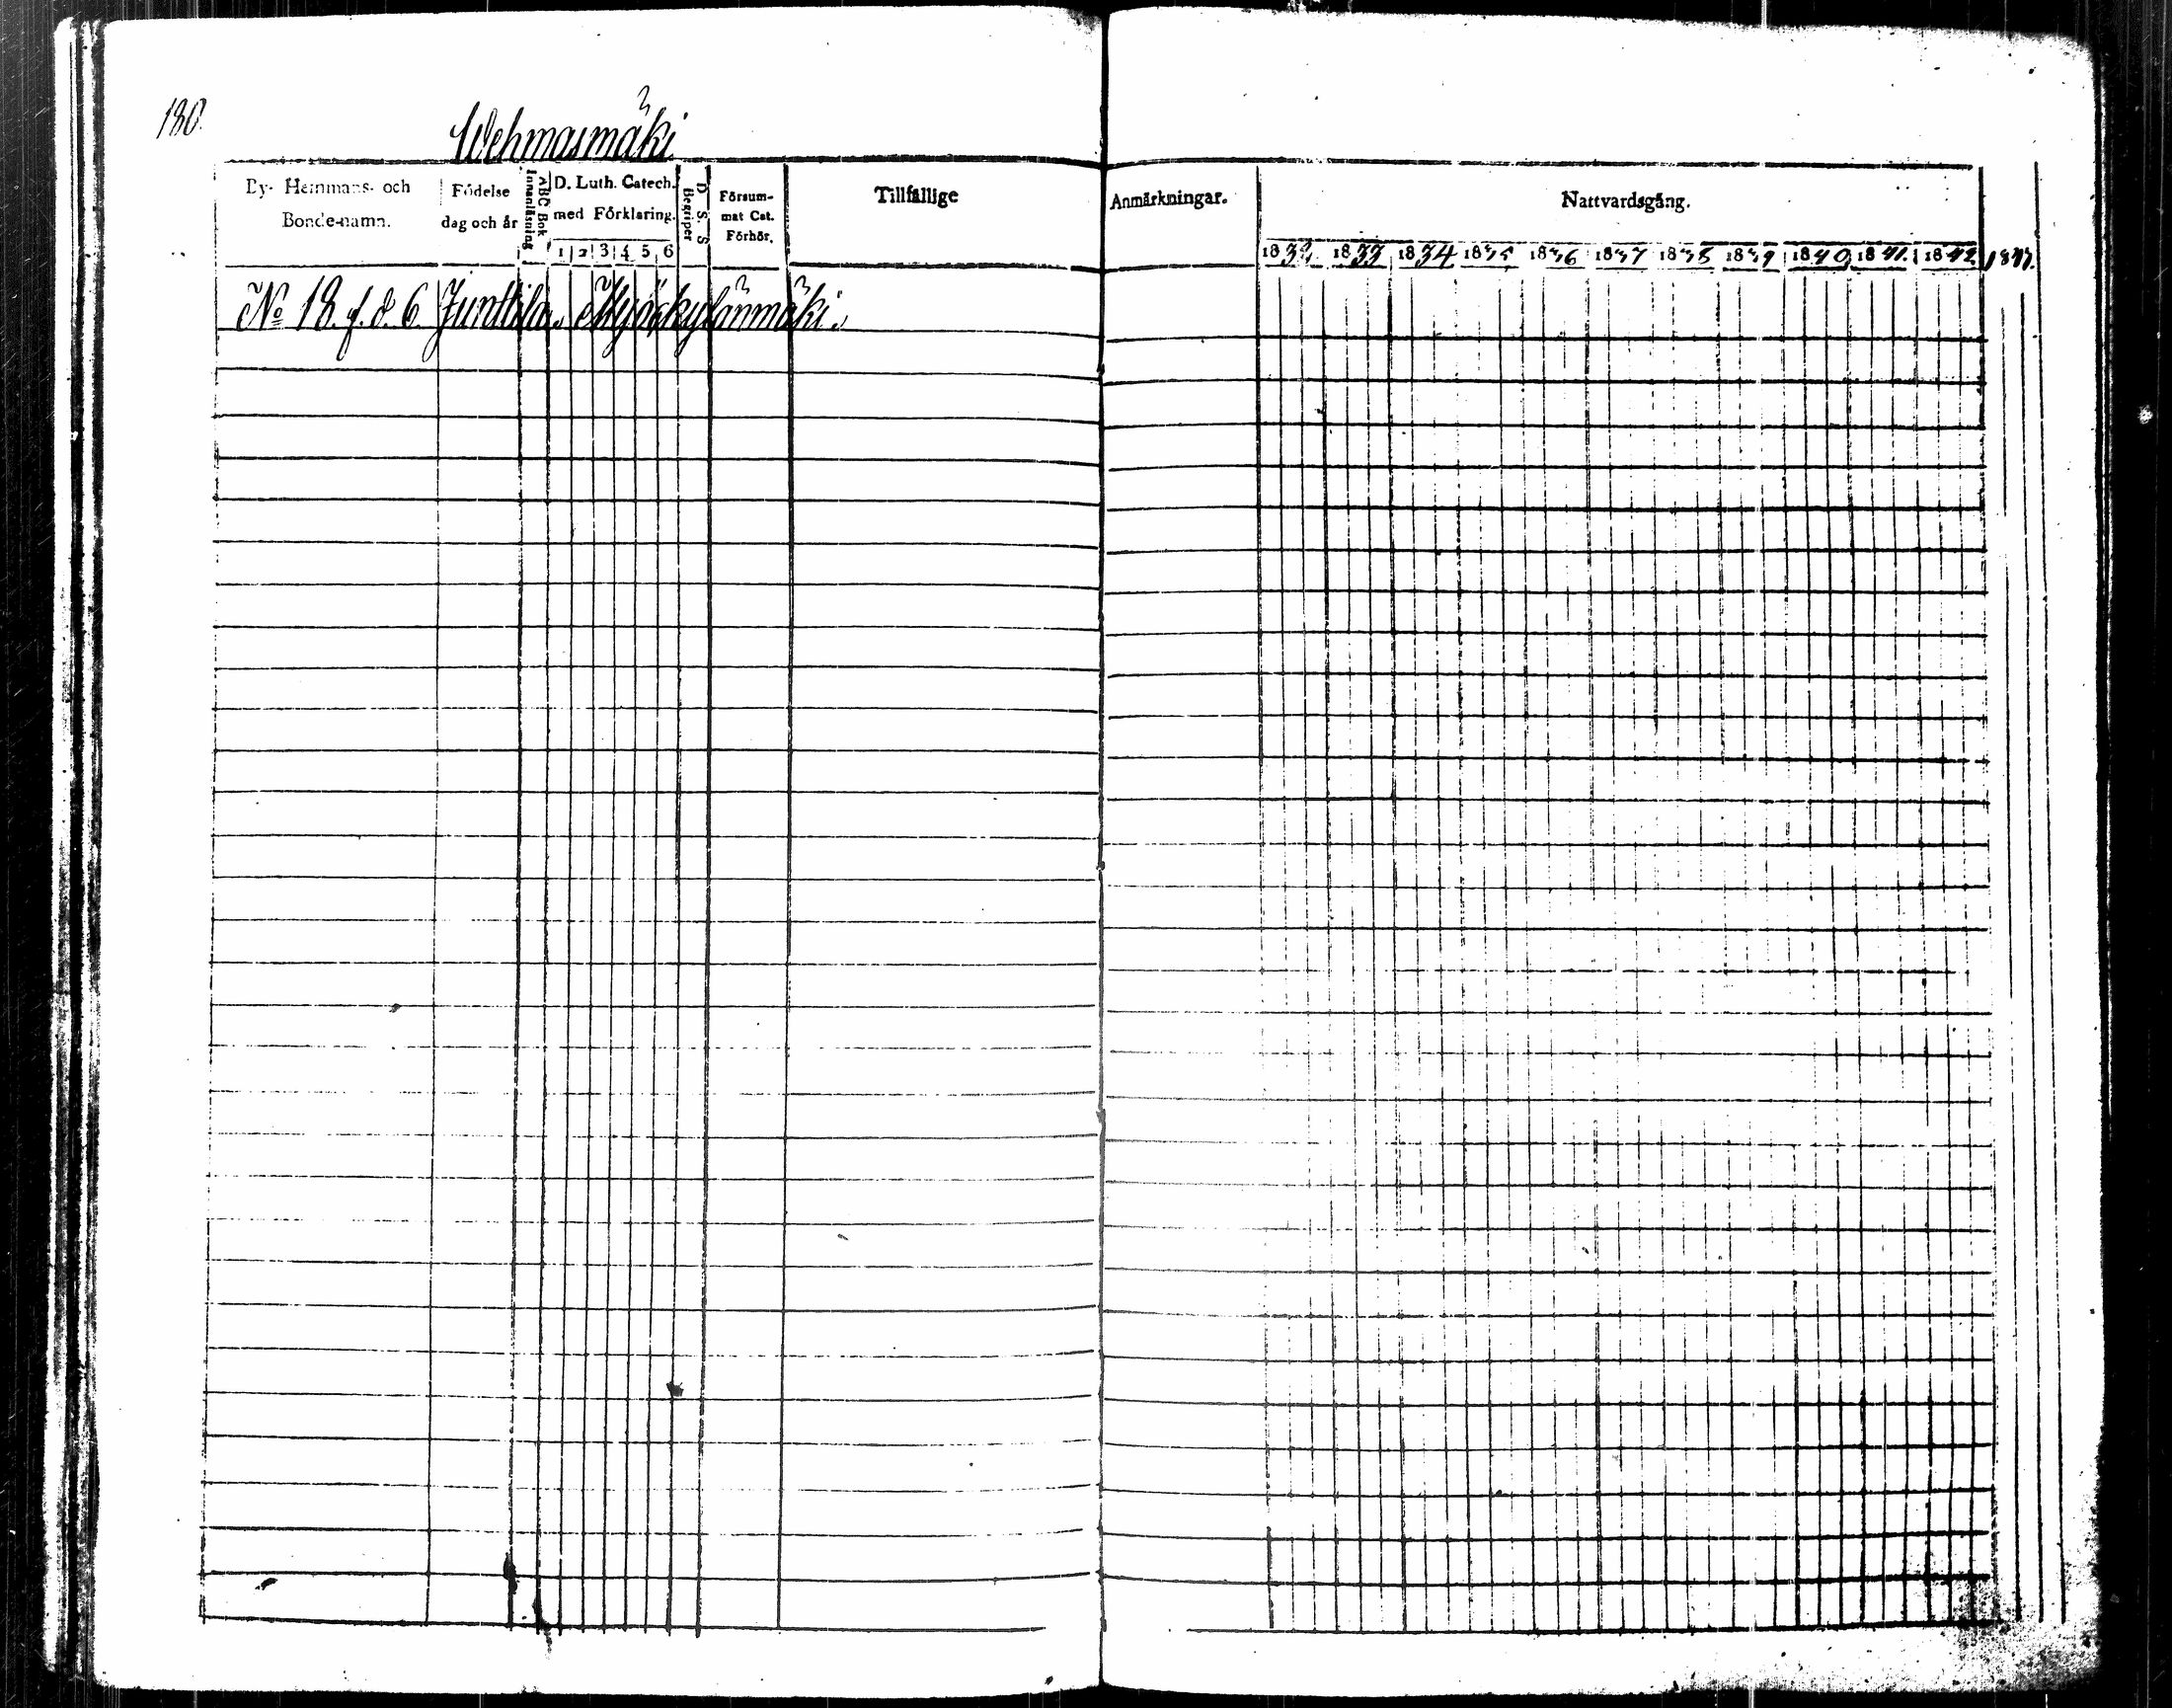 180.
Wehmasmäki
By- Hemmans- och
Bonde-namn.
Födelse
dag och år
ABC Bok
Innanläsning
D. Luth. Catech.
med Förklaring.
1 2 3 4 5 6
D. S. S
Begriper
Försum-
mat Cat.
Förhör.
Tillfällige
Anmärkningar.
Nattvardsgång.
1832 1833 1834 1835 1836 1837 1838 1839 1840 1841. 1842. 1843.
No 18. f. d. 6 Junttila.